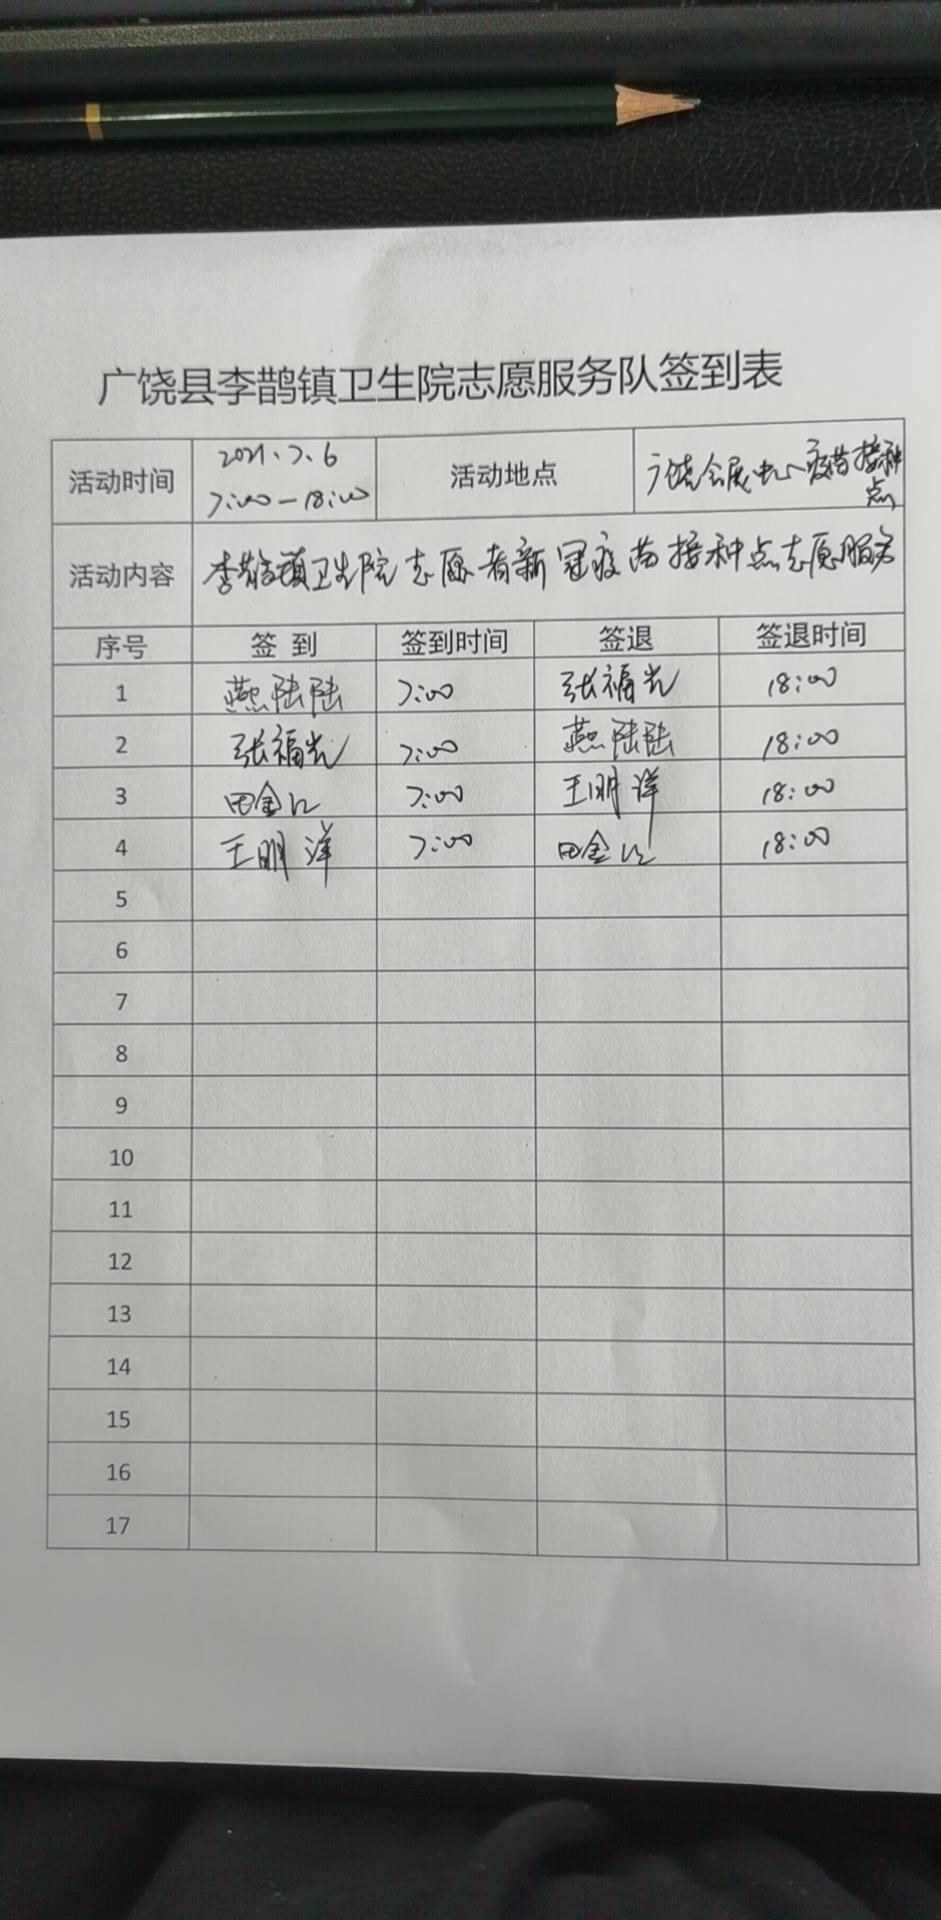 广饶县李鹊镇卫生院志愿服务队签到表
活动时间 2021.7.6 7:00—18:00 活动地点 广饶会展中心疫苗接种点
活动内容 李鹊镇卫生院志愿者新冠疫苗接种点志愿服务
序号 签到 签到时间 签退 签退时间
1 燕陆陆 7:00 张福光 18:00
2 张福光 7:00 燕陆陆 18:00
3 田金 7:00 王明洋 18:00
4 王明洋 7:00 田金 18:00
5
6
7
8
9
10
11
12
13
14
15
16
17